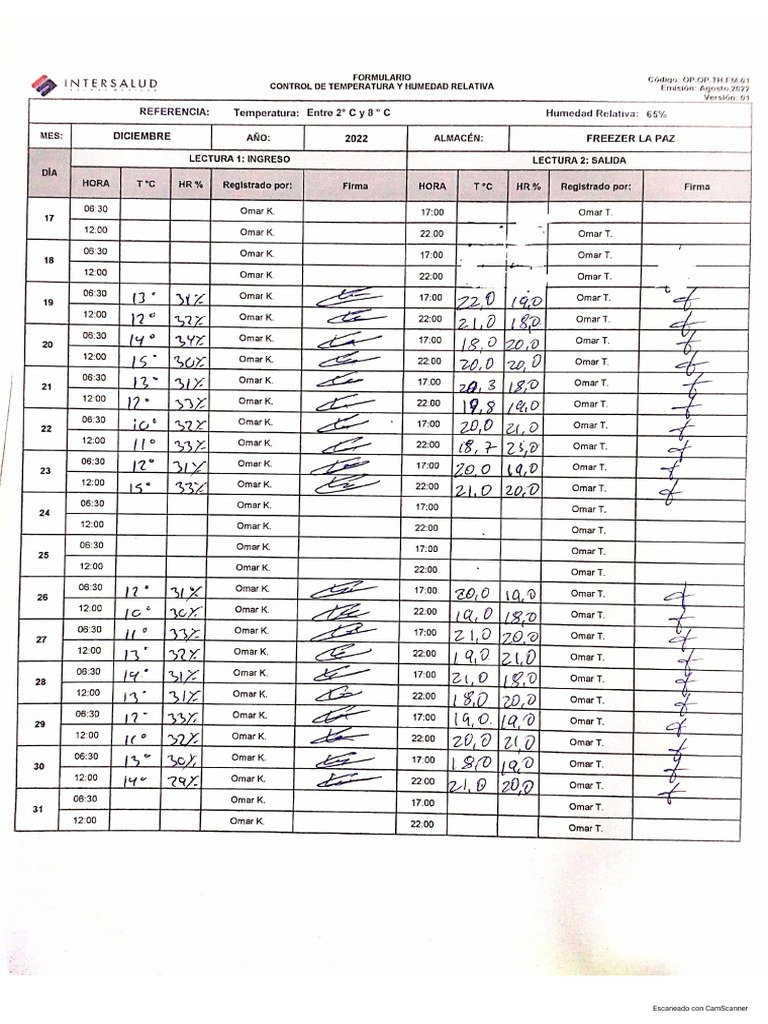 INTERSALUD
FORMULARIO
CONTROL DE TEMPERATURA Y HUMEDAD RELATIVA
Código: OP.OP.TH.FM.01
Emisión: Agosto,2022
Versión: 01
REFERENCIA: Temperatura: Entre 2° C y 8 ° C Humedad Relativa: 65%
MES: DICIEMBRE AÑO: 2022 ALMACÉN: FREEZER LA PAZ
DÍA LECTURA 1: INGRESO LECTURA 2: SALIDA
HORA T °C HR % Registrado por: Firma HORA T °C HR % Registrado por: Firma
17 06:30 Omar K. 17:00 Omar T.
12:00 Omar K. 22:00 Omar T.
18 06:30 Omar K. 17:00 Omar T.
12:00 Omar K. 22:00 Omar T.
19 06:30 13° 34% Omar K. 17:00 22,0 19,0 Omar T.
12:00 12° 32% Omar K. 22:00 21,0 18,0 Omar T.
20 06:30 14° 34% Omar K. 17:00 18,0 20,0 Omar T.
12:00 15° 30% Omar K. 22:00 20,0 20,0 Omar T.
21 06:30 13° 31% Omar K. 17:00 20,3 18,0 Omar T.
12:00 12° 33% Omar K. 22:00 19,8 19,0 Omar T.
22 06:30 10° 32% Omar K. 17:00 20,0 21,0 Omar T.
12:00 11° 33% Omar K. 22:00 18,7 23,0 Omar T.
23 06:30 12° 31% Omar K. 17:00 20,0 19,0 Omar T.
12:00 15° 33% Omar K. 22:00 21,0 20,0 Omar T.
24 06:30 Omar K. 17:00 Omar T.
12:00 Omar K. 22:00 Omar T.
25 06:30 Omar K. 17:00 Omar T.
12:00 Omar K. 22:00 Omar T.
26 06:30 12° 31% Omar K. 17:00 20,0 19,0 Omar T.
12:00 10° 30% Omar K. 22:00 19,0 18,0 Omar T.
27 06:30 11° 33% Omar K. 17:00 21,0 20,0 Omar T.
12:00 13° 32% Omar K. 22:00 19,0 21,0 Omar T.
28 06:30 14° 31% Omar K. 17:00 21,0 18,0 Omar T.
12:00 13° 31% Omar K. 22:00 18,0 20,0 Omar T.
29 06:30 12° 33% Omar K. 17:00 19,0 19,0 Omar T.
12:00 10° 32% Omar K. 22:00 20,0 21,0 Omar T.
30 06:30 13° 30% Omar K. 17:00 18,0 19,0 Omar T.
12:00 14° 29% Omar K. 22:00 21,0 20,0 Omar T.
31 06:30 Omar K. 17:00 Omar T.
12:00 Omar K. 22:00 Omar T.
Escaneado con CamScanner